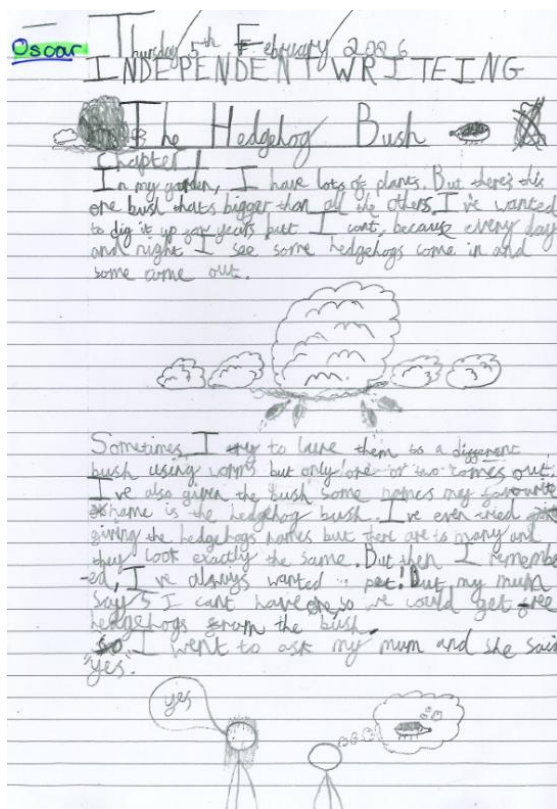 Oscar
Thursday 5th February 2026
INDEPENDENT WRITEING
The Hedgehog Bush
Chapter 1
In my garden, I have lots of plants. But there's this
one bush thats bigger than all the others. I've wanted
to dig it up for years but I cant, because every day
and night I see some hedgehogs come in and
some come out.
Sometimes, I try to lure them to a different
bush using worms but only one or two comes out.
I've also given the bush some names my favourite
name is the hedgehog bush. I've even tried
giving the hedgehogs names but there are to many and
they look exactly the same. But then I remember
-ed, I've always wanted pet! but my mum
says I cant have one, so we could get free
hedgehogs from the bush.
So I went to ask my mum and she said
"yes".
yes